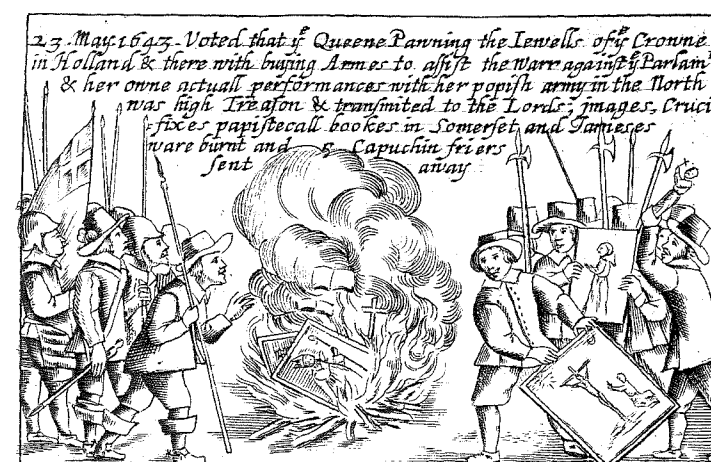 23. May. 1643. Voted that yͤ Queene Pawning the Iewells of yͤ Crowne
in Holland & there with buying Armes to aſſiſt the warr againſt yͤ Parlam
& her owne actuall performances with her popiſh army in the North
was high Treaſon & tranſmited to the Lords, images, Cruci
-fixes papiſtecall bookes in Somerſet and Iameſes
ware burnt and 5 Capuchin friers
ſent away